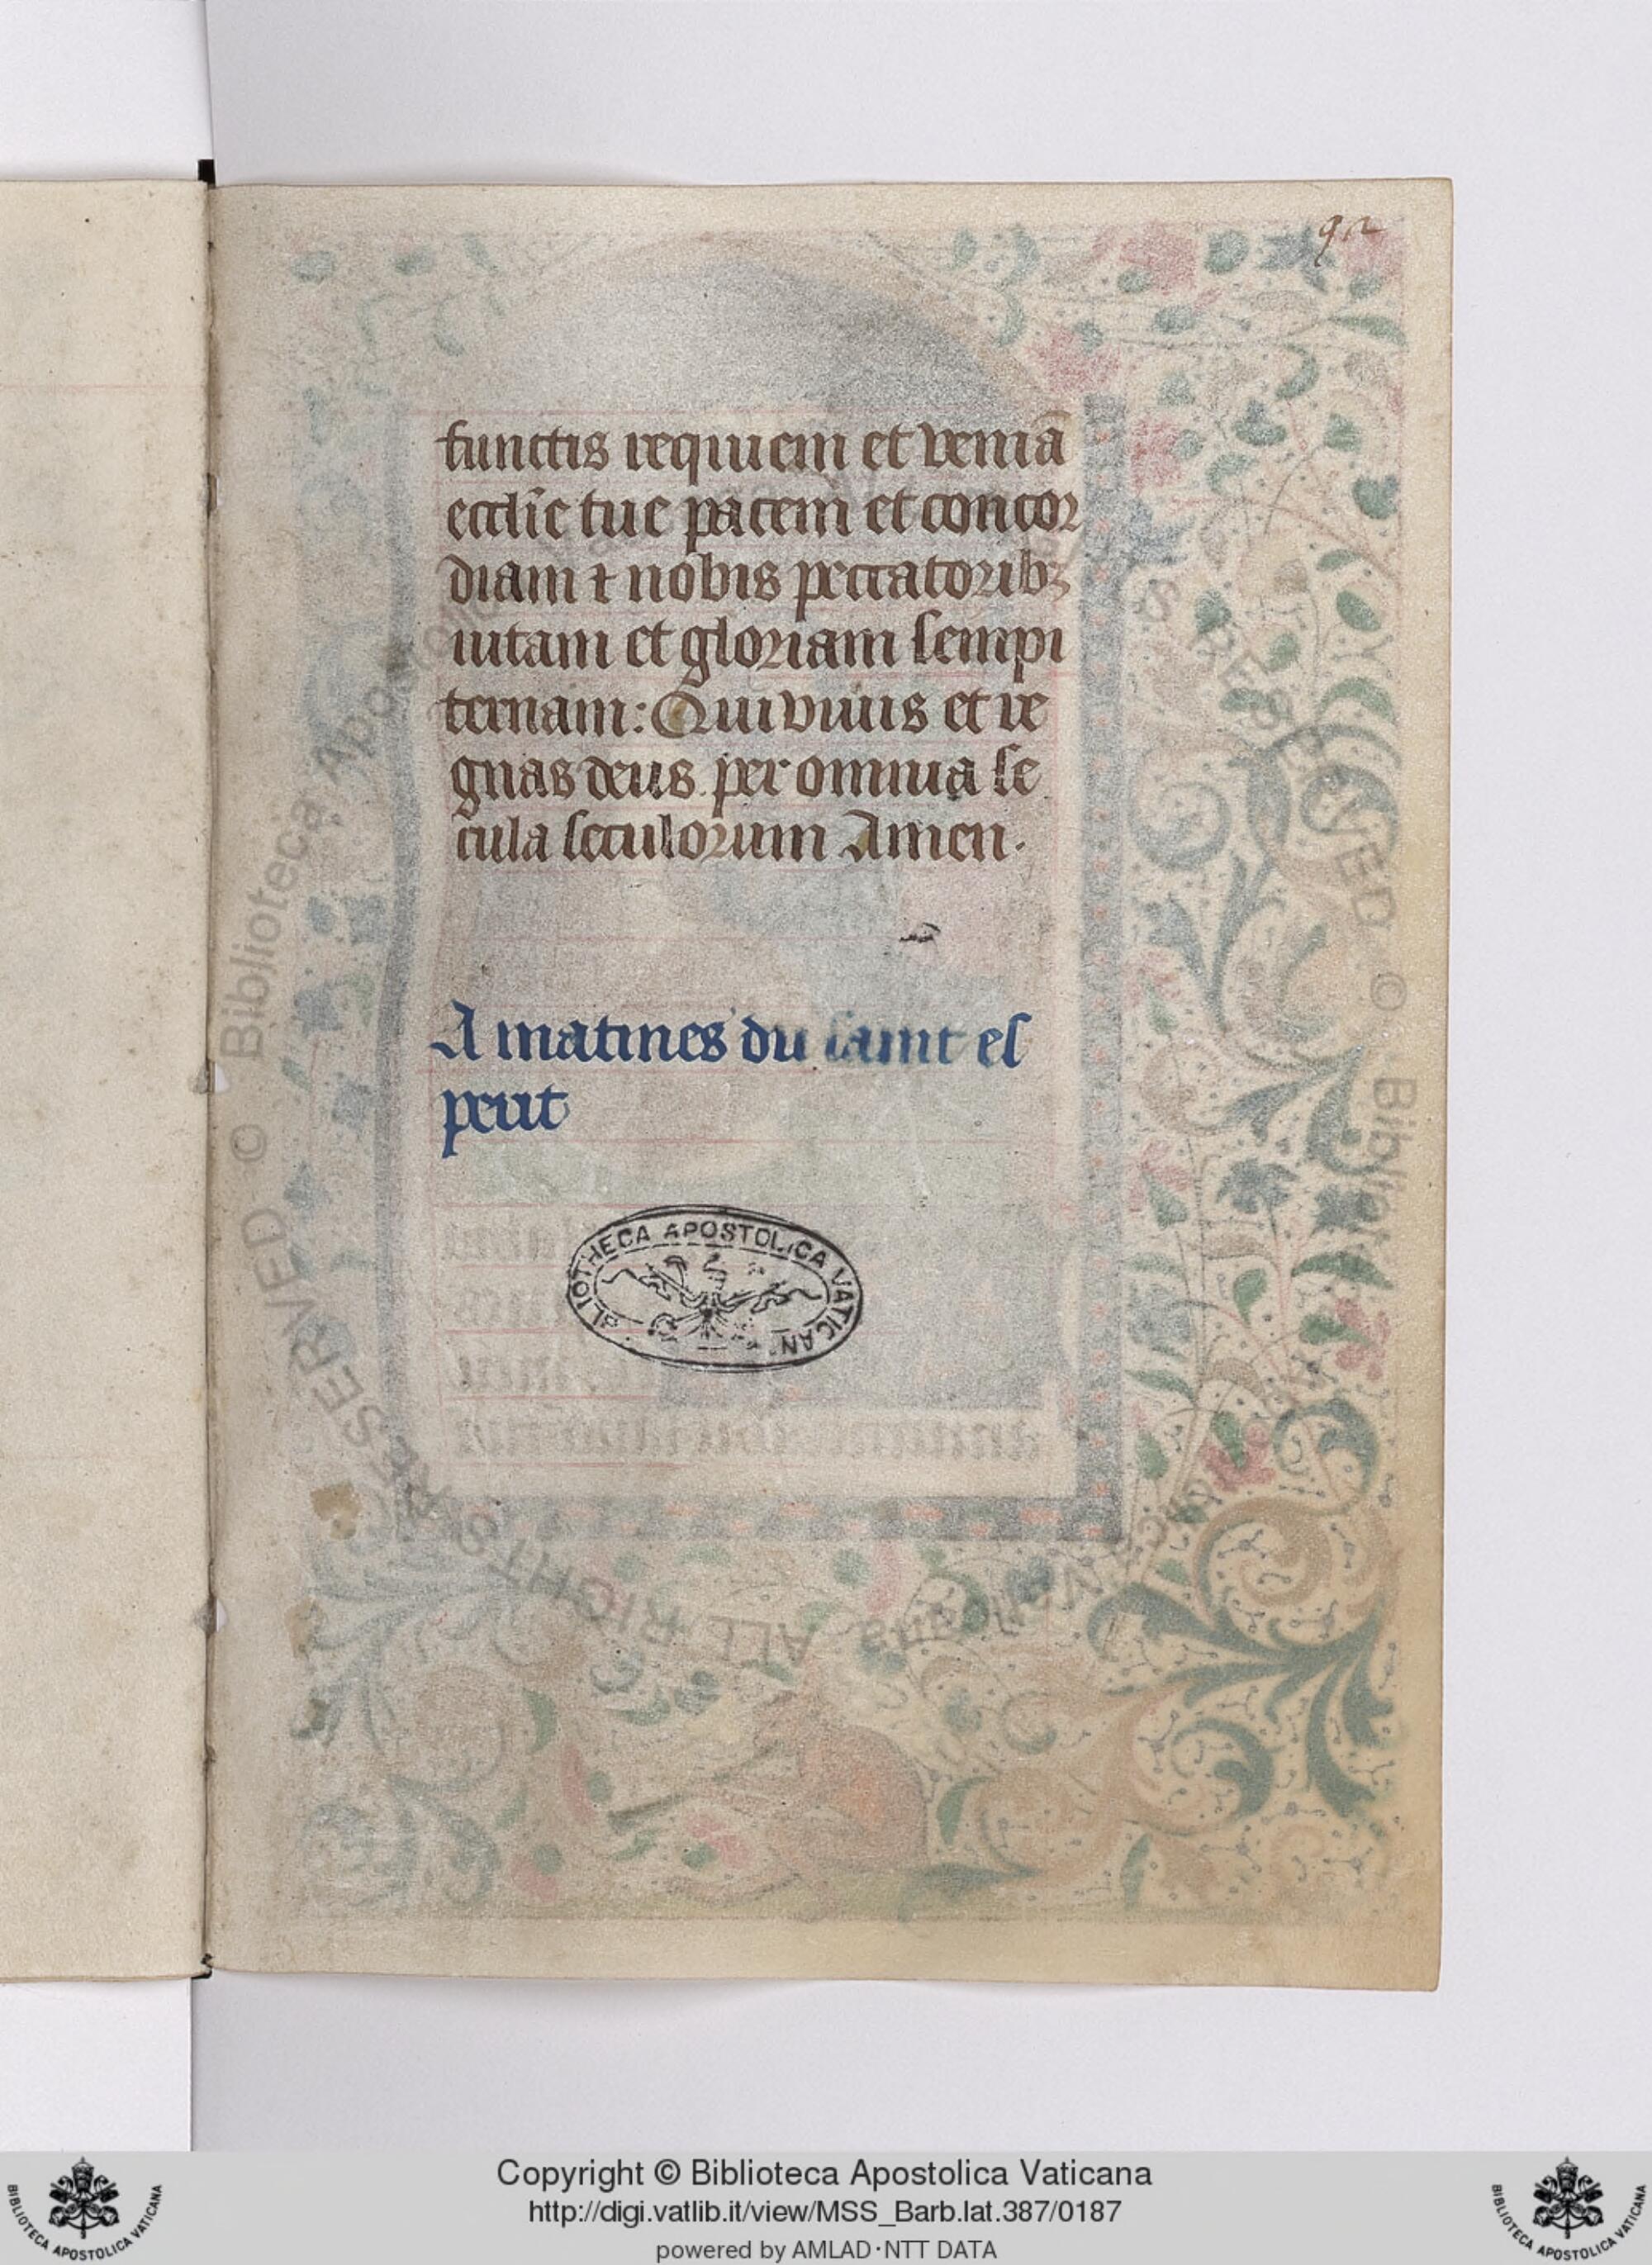 92
functis requiem et veniā
ecclīe tue pacem et concor
diam ⁊ nobis peccatoribꝫ
uitam et gloriam sempi
ternam: Qui viuis et re
gnas deus per omnia se
cula seculorum Amen.
A matines du saint es
perit
BIBLIOTHECA APOSTOLICA VATICAN
© Biblioteca Apostolica Vaticana ALL RIGHTS RESERVED
Copyright © Biblioteca Apostolica Vaticana
http://digi.vatlib.it/view/MSS_Barb.lat.387/0187
powered by AMLAD·NTT DATA
BIBLIOTECA APOSTOLICA VATICANA
BIBLIOTECA APOSTOLICA VATICANA